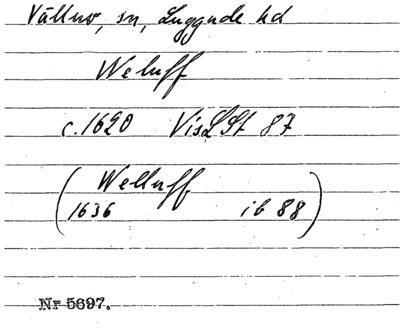 Välluv, sn, Luggude hd
Weluff
c. 1620 VisLSt 87
(Welluff
1636 ib 88)
Nr 5697.